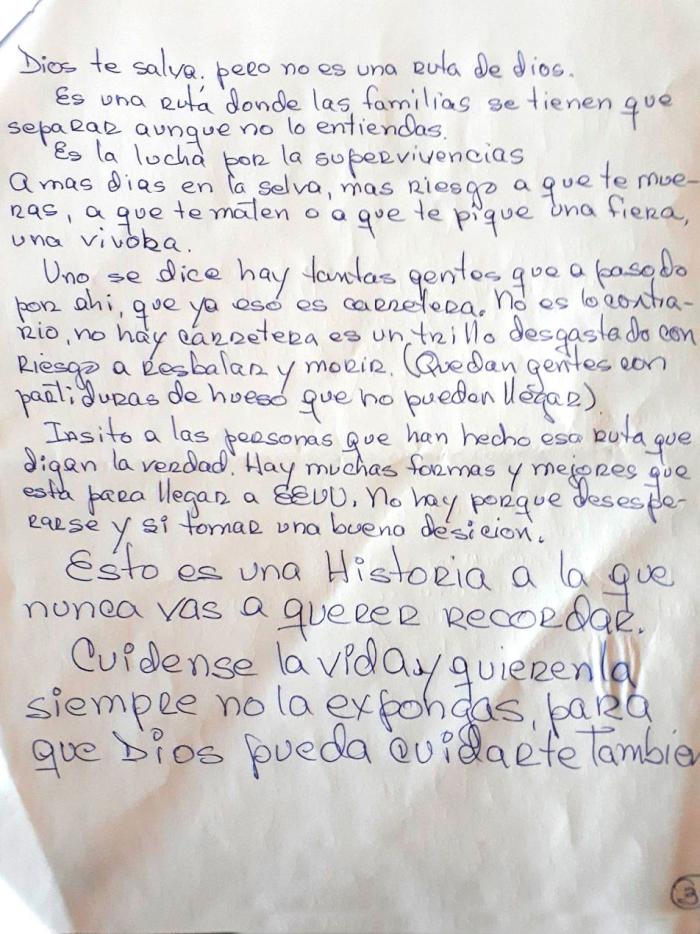 Dios te salva. pero no es una ruta de dios.
Es una ruta donde las familias se tienen que
separar aunque no lo entiendas.
Es la lucha por la supervivencias
a mas dias en la selva, mas riesgo a que te mue-
ras, a que te maten o a que te pique una fiera,
una vivora.
Uno se dice hay tantas gentes que a pasado
por ahi, que ya eso es carretera. No es lo contra-
rio, no hay carretera es un trillo desgastado con
riesgo a resbalar y morir. (Quedan gentes con
partiduras de hueso que no pueden llegar).
Insito a las personas que han hecho esa ruta que
digan la verdad. Hay muchas formas y mejores que
esta para llegar a EEUU. No hay porque desespe-
rarse y si tomar una buena desicion.
Esto es una Historia a la que
nunca vas a querer recordar.
Cuidense la vida y quieren la
siempre no la expongas, para
que Dios pueda cuidarte Tambien
3